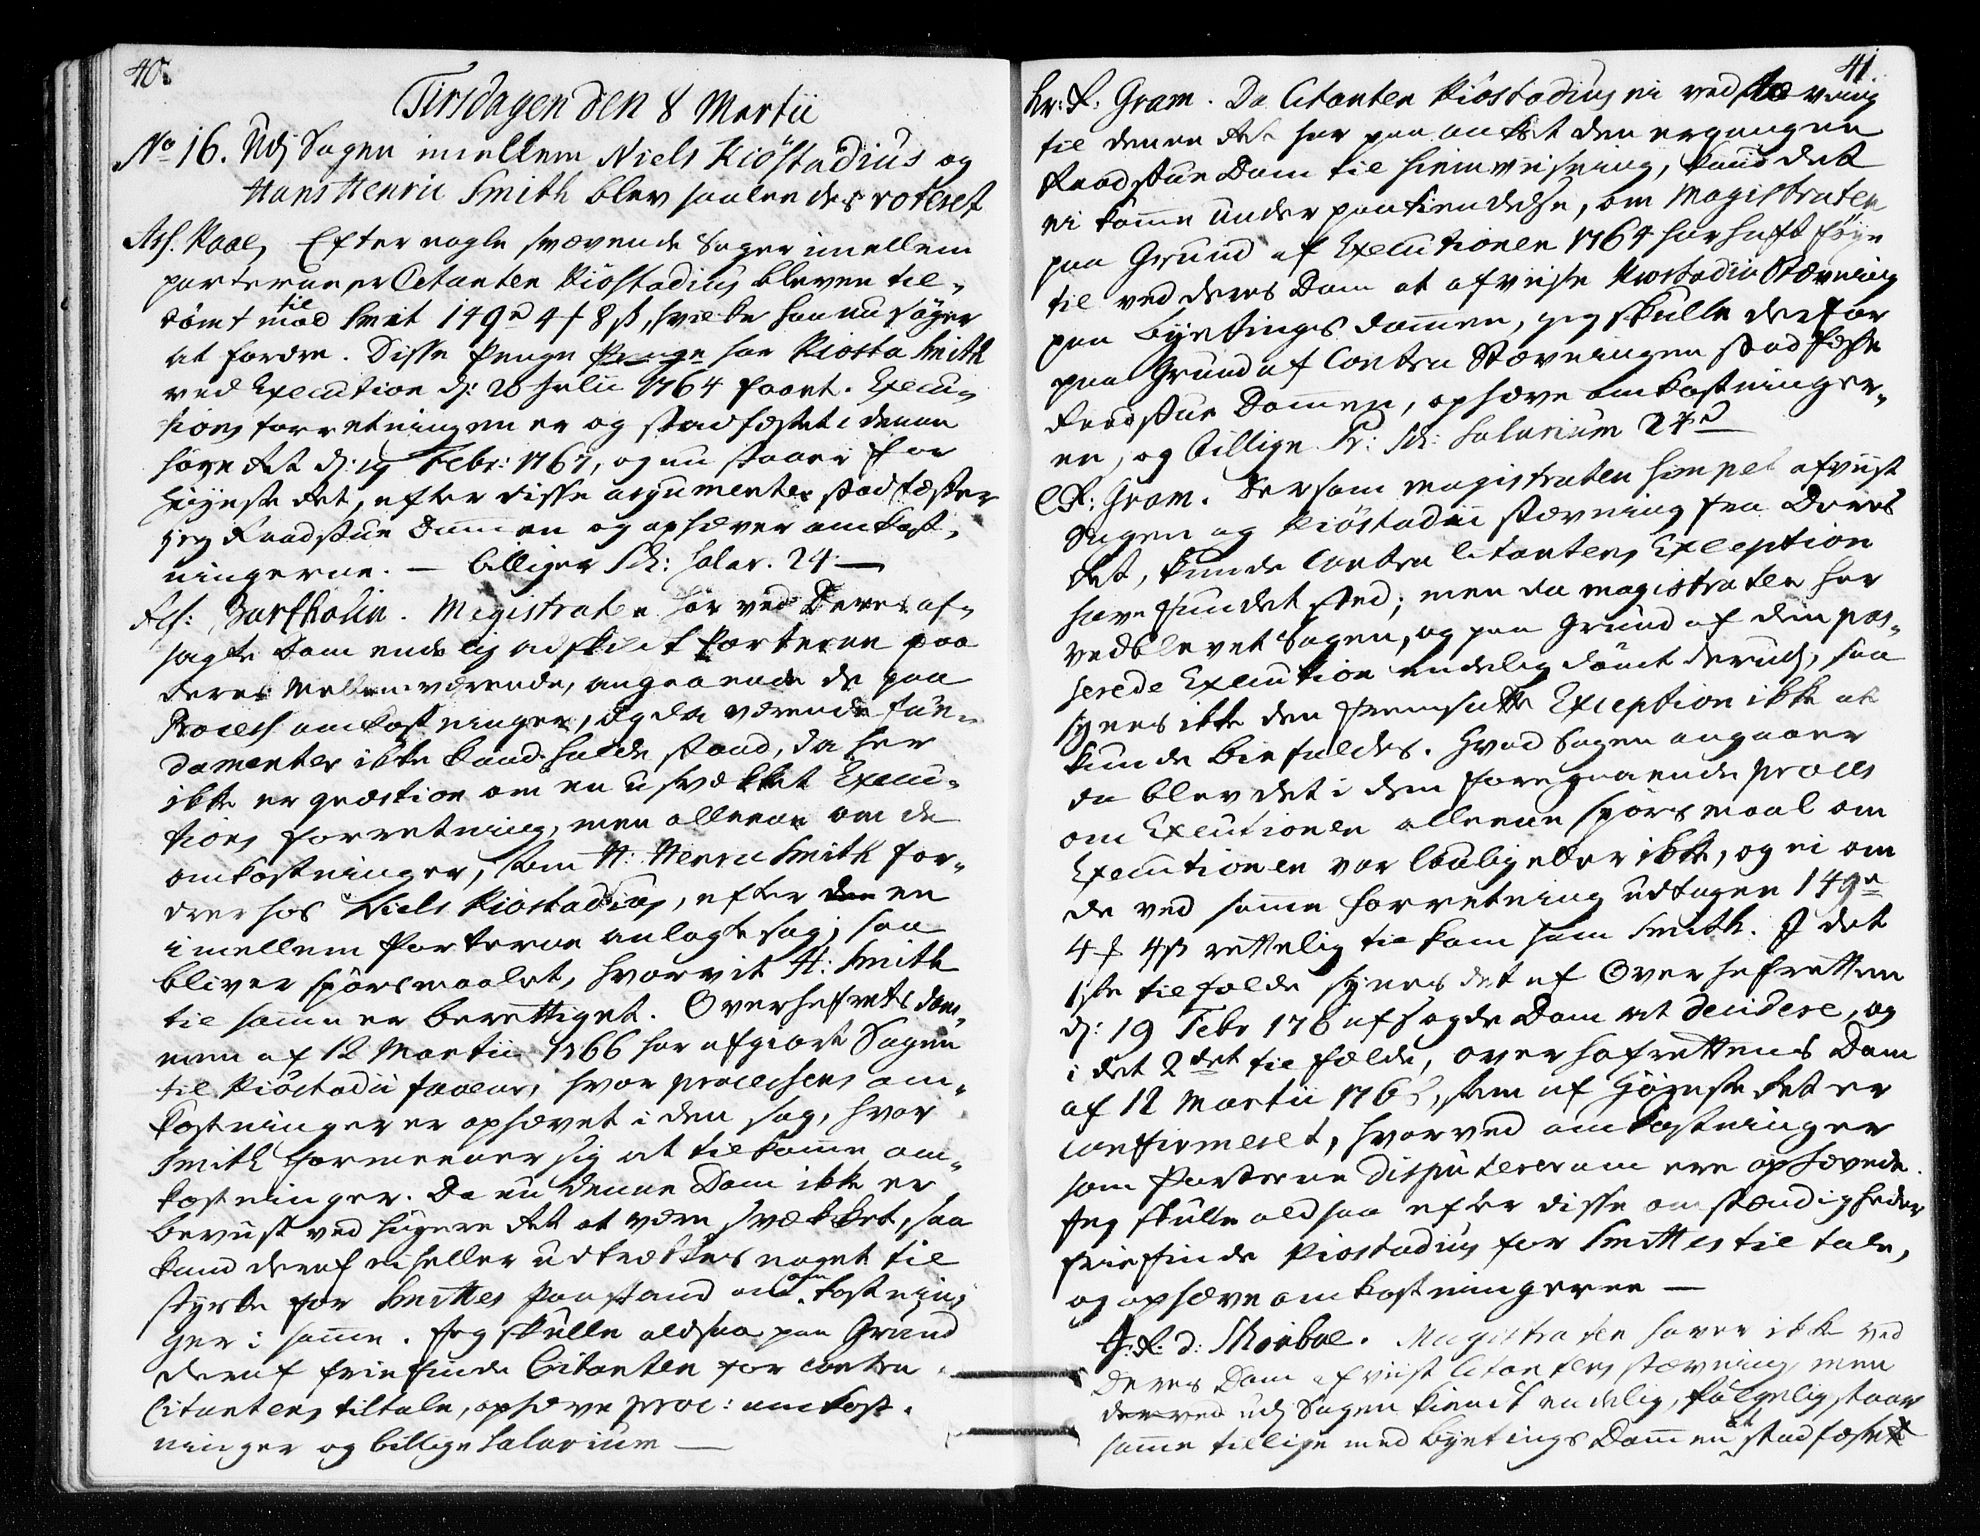 40.
Tirsdagen den 8 Martii
No 16. Udj Sagen imellem Niels Kiöstadius og
Hans Henric Smith blev saaledes voteret
Ass. Kaae, Efter nogle svævende Sager imellem
parterne, er Citanten Kiöstadius bleven til-
dömt til Smit 149 rd 4 f 8 s, hvilke han nu söger
at fordre. Disse Penge har Kiösta Smith
ved Execution d: 20 Julii 1764 faaet. Execu-
tions forretningen er og stadfæstet i denne
höye Ret d: 19 Febr: 1767, og nu staaer for
höyeste Ret, efter disse argumenter stadfæster
jeg Raadstue Dommen og ophæver omkost-
ningerne. — billiger Sch: Salar. 24 —
Ass: Bartholin. Magistraten har ved Deres af-
sagte Dom endelig adskildt Parterne paa
deres Mellemværende, angaaende de paa
Processomkostninger, og da værende fun-
damenter ikke kand holde stand, da her
ikke er qvæstion om en usvækket Execu-
tions forretning, men alleene om de
omkostninger, som H: Henric Smith for-
drer hos Niels Kiöstadius, efter en
imellem Parterne anlagt sag; saa
bliver spörsmaalet, hvorvit H: Smith
til samme er berettiget. Overhofrets dom-
men af 12 Martii 1766 har afgiort Sagen
til Kiöstadii faveur, hvor processens om-
kostninger er ophævet i den sag, hvor
Smith formeener sig at tilkomme om-
kostninger. Da nu denne Dom ikke er
bevust ved höyere Ret at være svækket, saa
kand deraf ei heller udtrækkes noget til
styrke for Smittes Paastand om omkostnin-
ger i samme. Jeg skulle altsaa paa Grund
deraf friefinde Citanten for contra
Citantens tiltale, ophæve proc: omkost-
ninger og billige Salarium —
41.
Hr: R: Gram. Da Citanten Kiöstadius ei ved stævning
til denne Ret har paaanket den ergangne
Raadstue Dom til hiemvisning, kand det
ei komme under paakiendelse, om Magistraten
paa Grund af Executionen 1764 har haft föye
til ved deres Dom at afvise Kiöstadii Stævning
paa byetings dommen, jeg skulle derfor
paa Grund af Contra Stævningen stadfæste
Raadstue Dommen, ophæve omkostninger-
ne, og billige Pr: Sch: Salarium 24 rd
C R: Gram. Dersom magistraten simpel afviist
Sagen og Kiöstadii stævning fra Deres
Ret, kunde Contra Citantens Exception
have fundet sted; men da magistraten har
vedblevet Sagen, og paa Grund af den pas-
serede Execution endelig dömt derudj, saa
synes ikke den fremsatte Exception ikke at
kunde biefaldes. Hvad Sagen angaaer
da blev det i den foregaaende process
om Executionen alleene spörsmaal om
Executionen var lovlig eller ikke, og ei om
de ved samme forretning udtagne 149 rd
4 f 4 s rettelig tilkom ham Smith. I det
1ste tilfælde synes det af Overhofretten
d: 19 Febr 176 afsagde Dom at decidere, og
i det 2det tilfælde, overhofrettens Dom
af 12 Martii 1766, som af Höyeste Ret er
confirmeret, hvorved omkostninger
som Parterne disputerer om ere ophævede.
Jeg skulle altsaa efter disse omstændigheder
friefinde Kiöstadius for Smittes tiltale,
og ophæve omkostningerne —
J. R: d: Skeiboe. Magistraten haver ikke ved
Deres Dom afviist Citantens stævning men
derved udj Sagen kiendt endelig, fölgelig staar
samme tillige med byetings Dommen at stadfæste